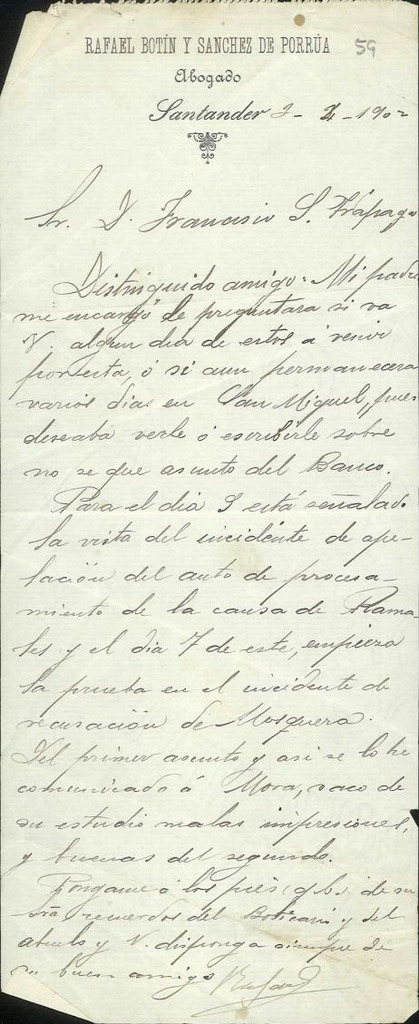 RAFAEL BOTÍN Y SANCHEZ DE PORRÚA
59
Abogado
Santander 2- 4 -1902
Sr. D. Francisco S. Trápaga
Distinguido amigo: Mi padre
me encargó le preguntara si va
V. algun dia de estos á venir
por esta, ó si aun permanecera
varios dias en San Miguel, pues
deseaba verle ó escribirle sobre
no se que asunto del Banco.
Para el dia 9 está señalada
la vista del incidente de ape-
lación del auto de procesa-
miento de la causa de Rama-
les y el dia 7 de este, empieza
la prueba en el incidente de
recusación de Mosquera.
Del primer asunto y asi se lo he
comunicado á Mora, saco de
su estudio malas impresiones,
y buenas del segundo.
Pongame á los piés (q. b.) de su
recuerdos del Boticario y del
abuelo y V. disponga siempre de
su buen amigo Rafael